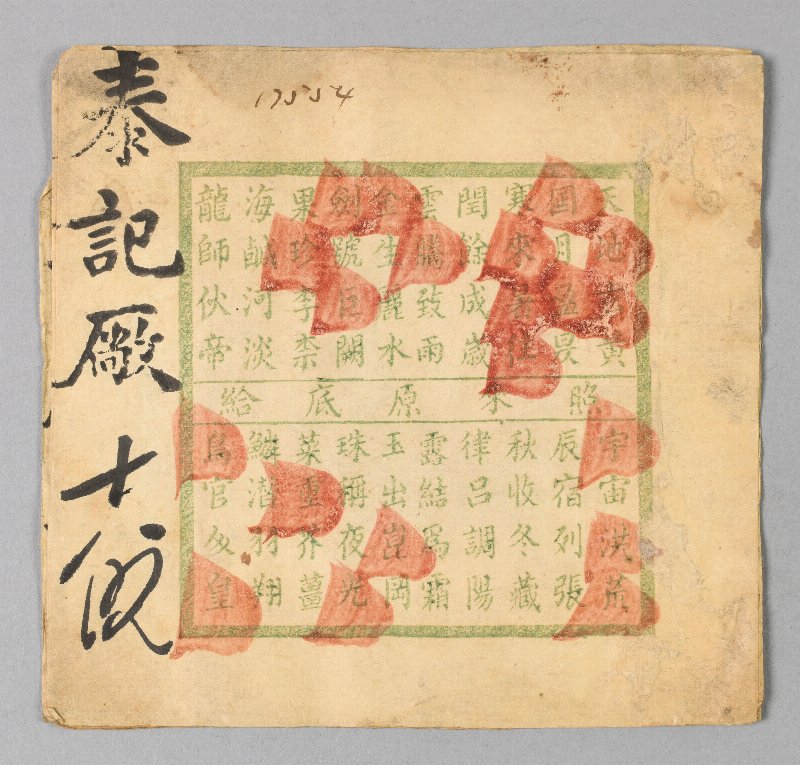 17554
天地玄黃
囸月盈昃
寒來暑往
閏餘成歲
雲騰致雨
金生麗水
劍號巨闕
果珍李柰
海鹹河淡
龍師伙帝
照本原底給
宇宙洪荒
辰宿列張
秋收冬藏
律呂調陽
露結爲霜
玉出崑岡
珠稱夜光
菜重芥薑
鱗潛羽翔
鳥官皇
泰記廠十